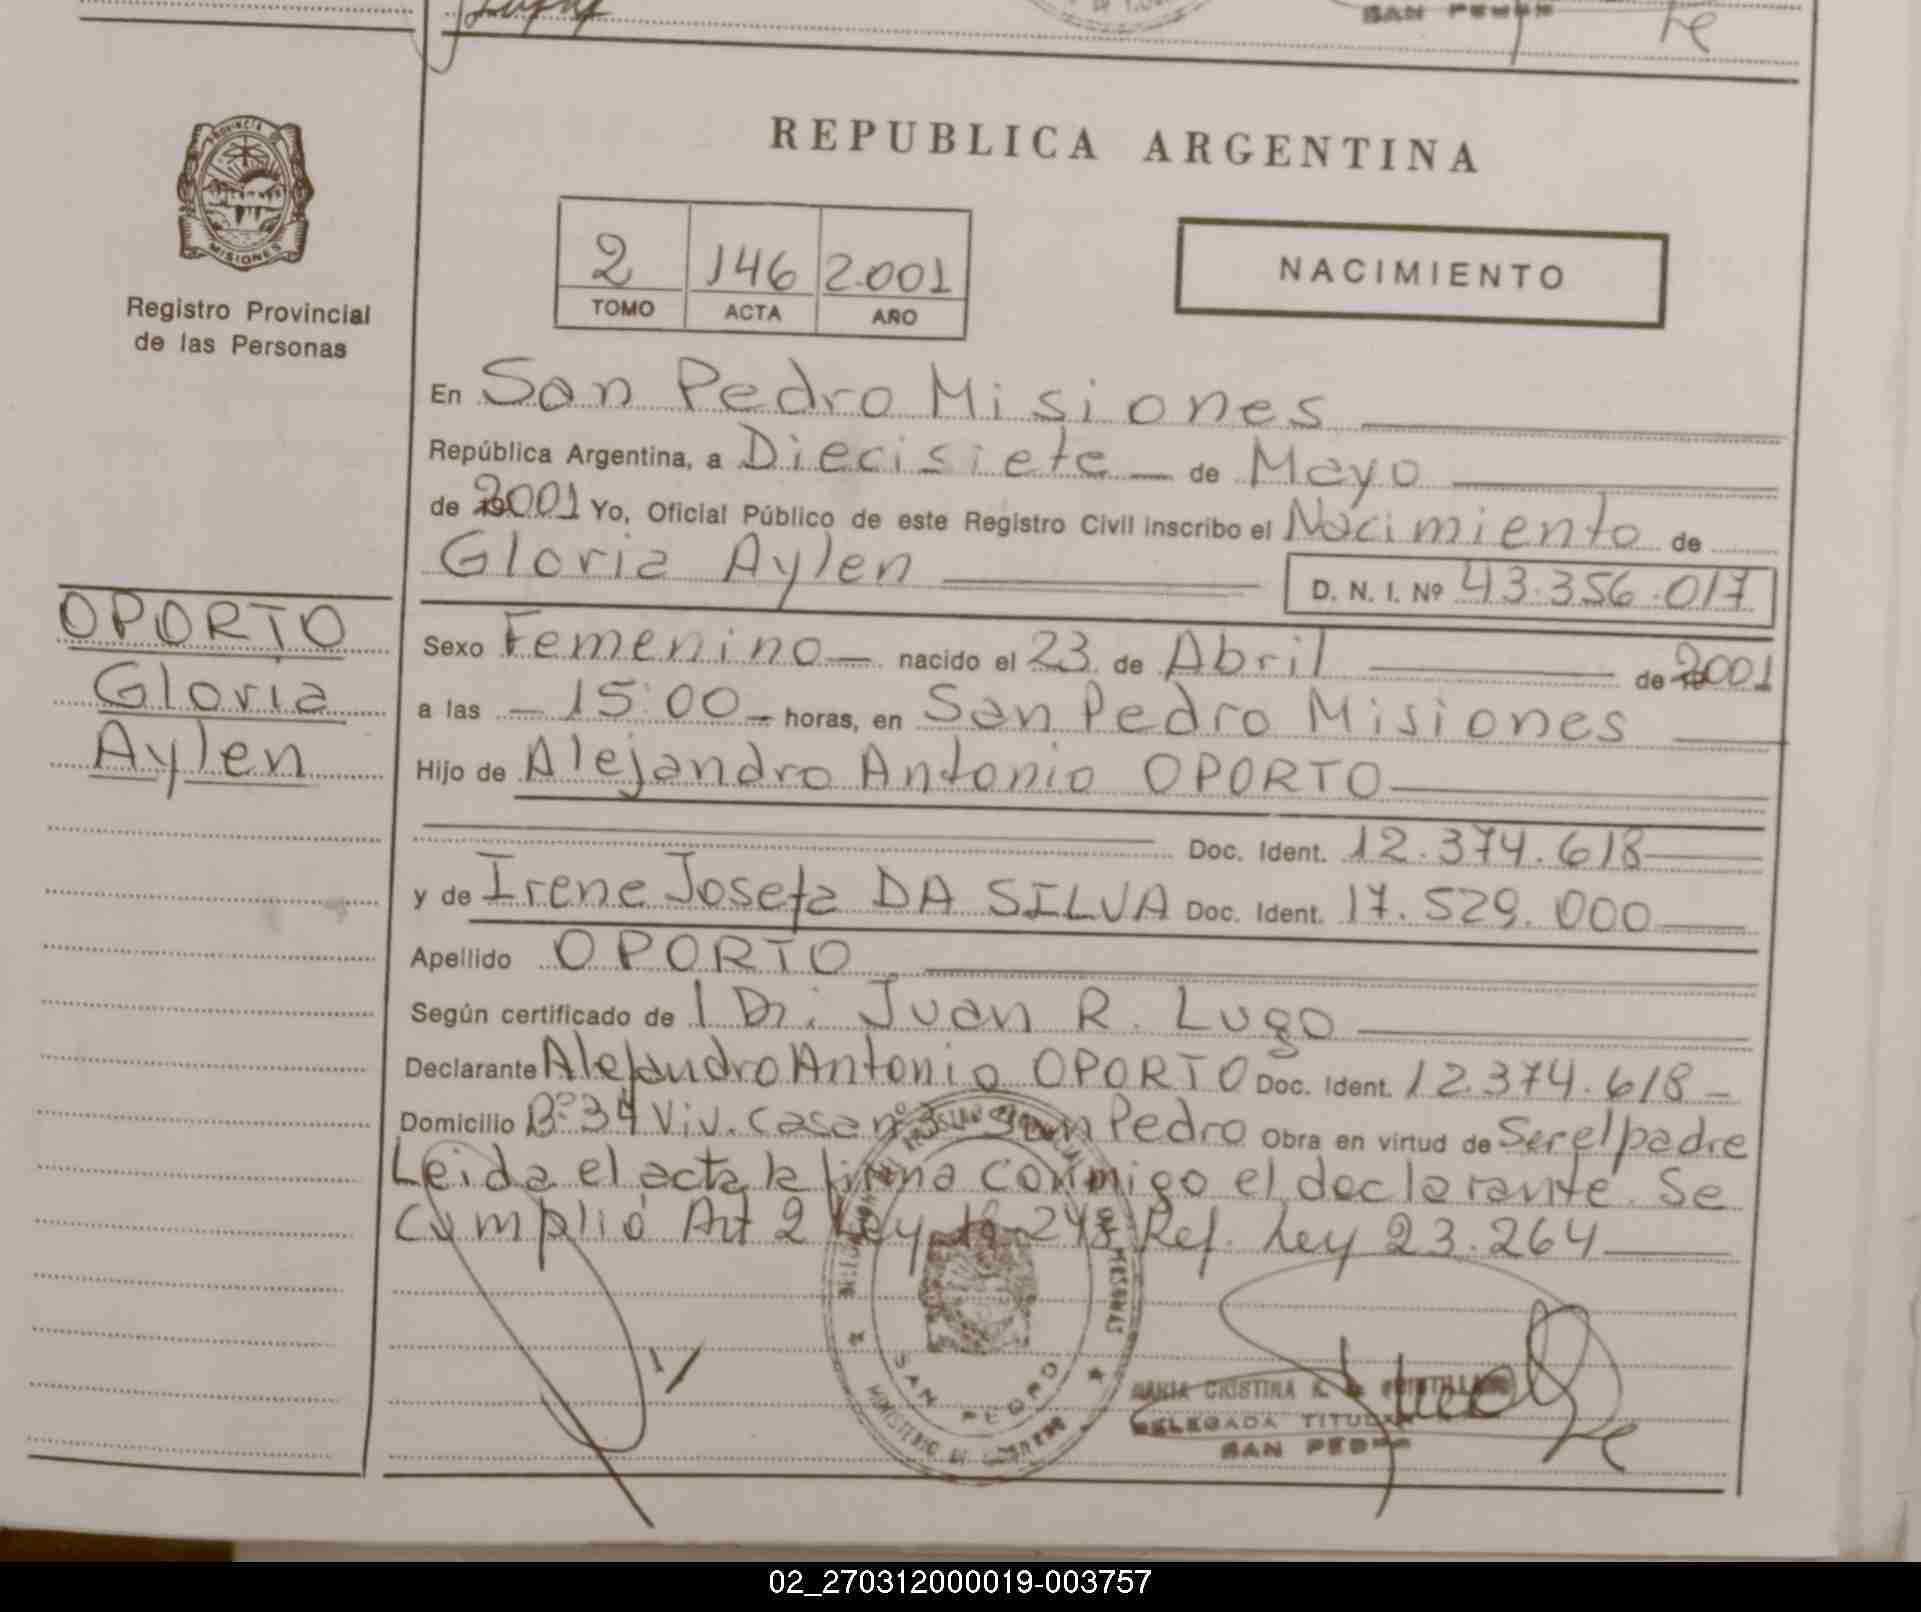 SAN PEDRO
REPUBLICA ARGENTINA
PROVINCIA DE
MISIONES
Registro Provincial
de las Personas
2 146 2.001
TOMO ACTA AÑO
NACIMIENTO
En San Pedro Misiones
República Argentina, a Diecisiete de Mayo
de 2001 Yo, Oficial Público de este Registro Civil inscribo el Nacimiento de
Gloria Aylen D. N. I. Nº 43.356.017
OPORTO
Gloria
Aylen
Sexo Femenino nacido el 23 de Abril de 2001
a las 15:00 horas, en San Pedro Misiones
Hijo de Alejandro Antonio OPORTO
Doc. Ident. 12.374.618
y de Irene Josefa DA SILVA Doc. Ident. 17.529.000
Apellido OPORTO
Según certificado de l Dr: Juan R. Lugo
Declarante Alejandro Antonio OPORTO Doc. Ident. 12.374.618
Domicilio Bº 34 Viv. Casa nº 3 San Pedro Obra en virtud de Ser el padre
Leida el acta la firma conmigo el declarante. Se
Cumplió Art 2 Ley Ref. Ley 23.264
SAN PEDRO
MINISTERIO DE GOBIERNO
MARIA CRISTINA
DELEGADA TITULAR
SAN PEDRO
02_270312000019-003757